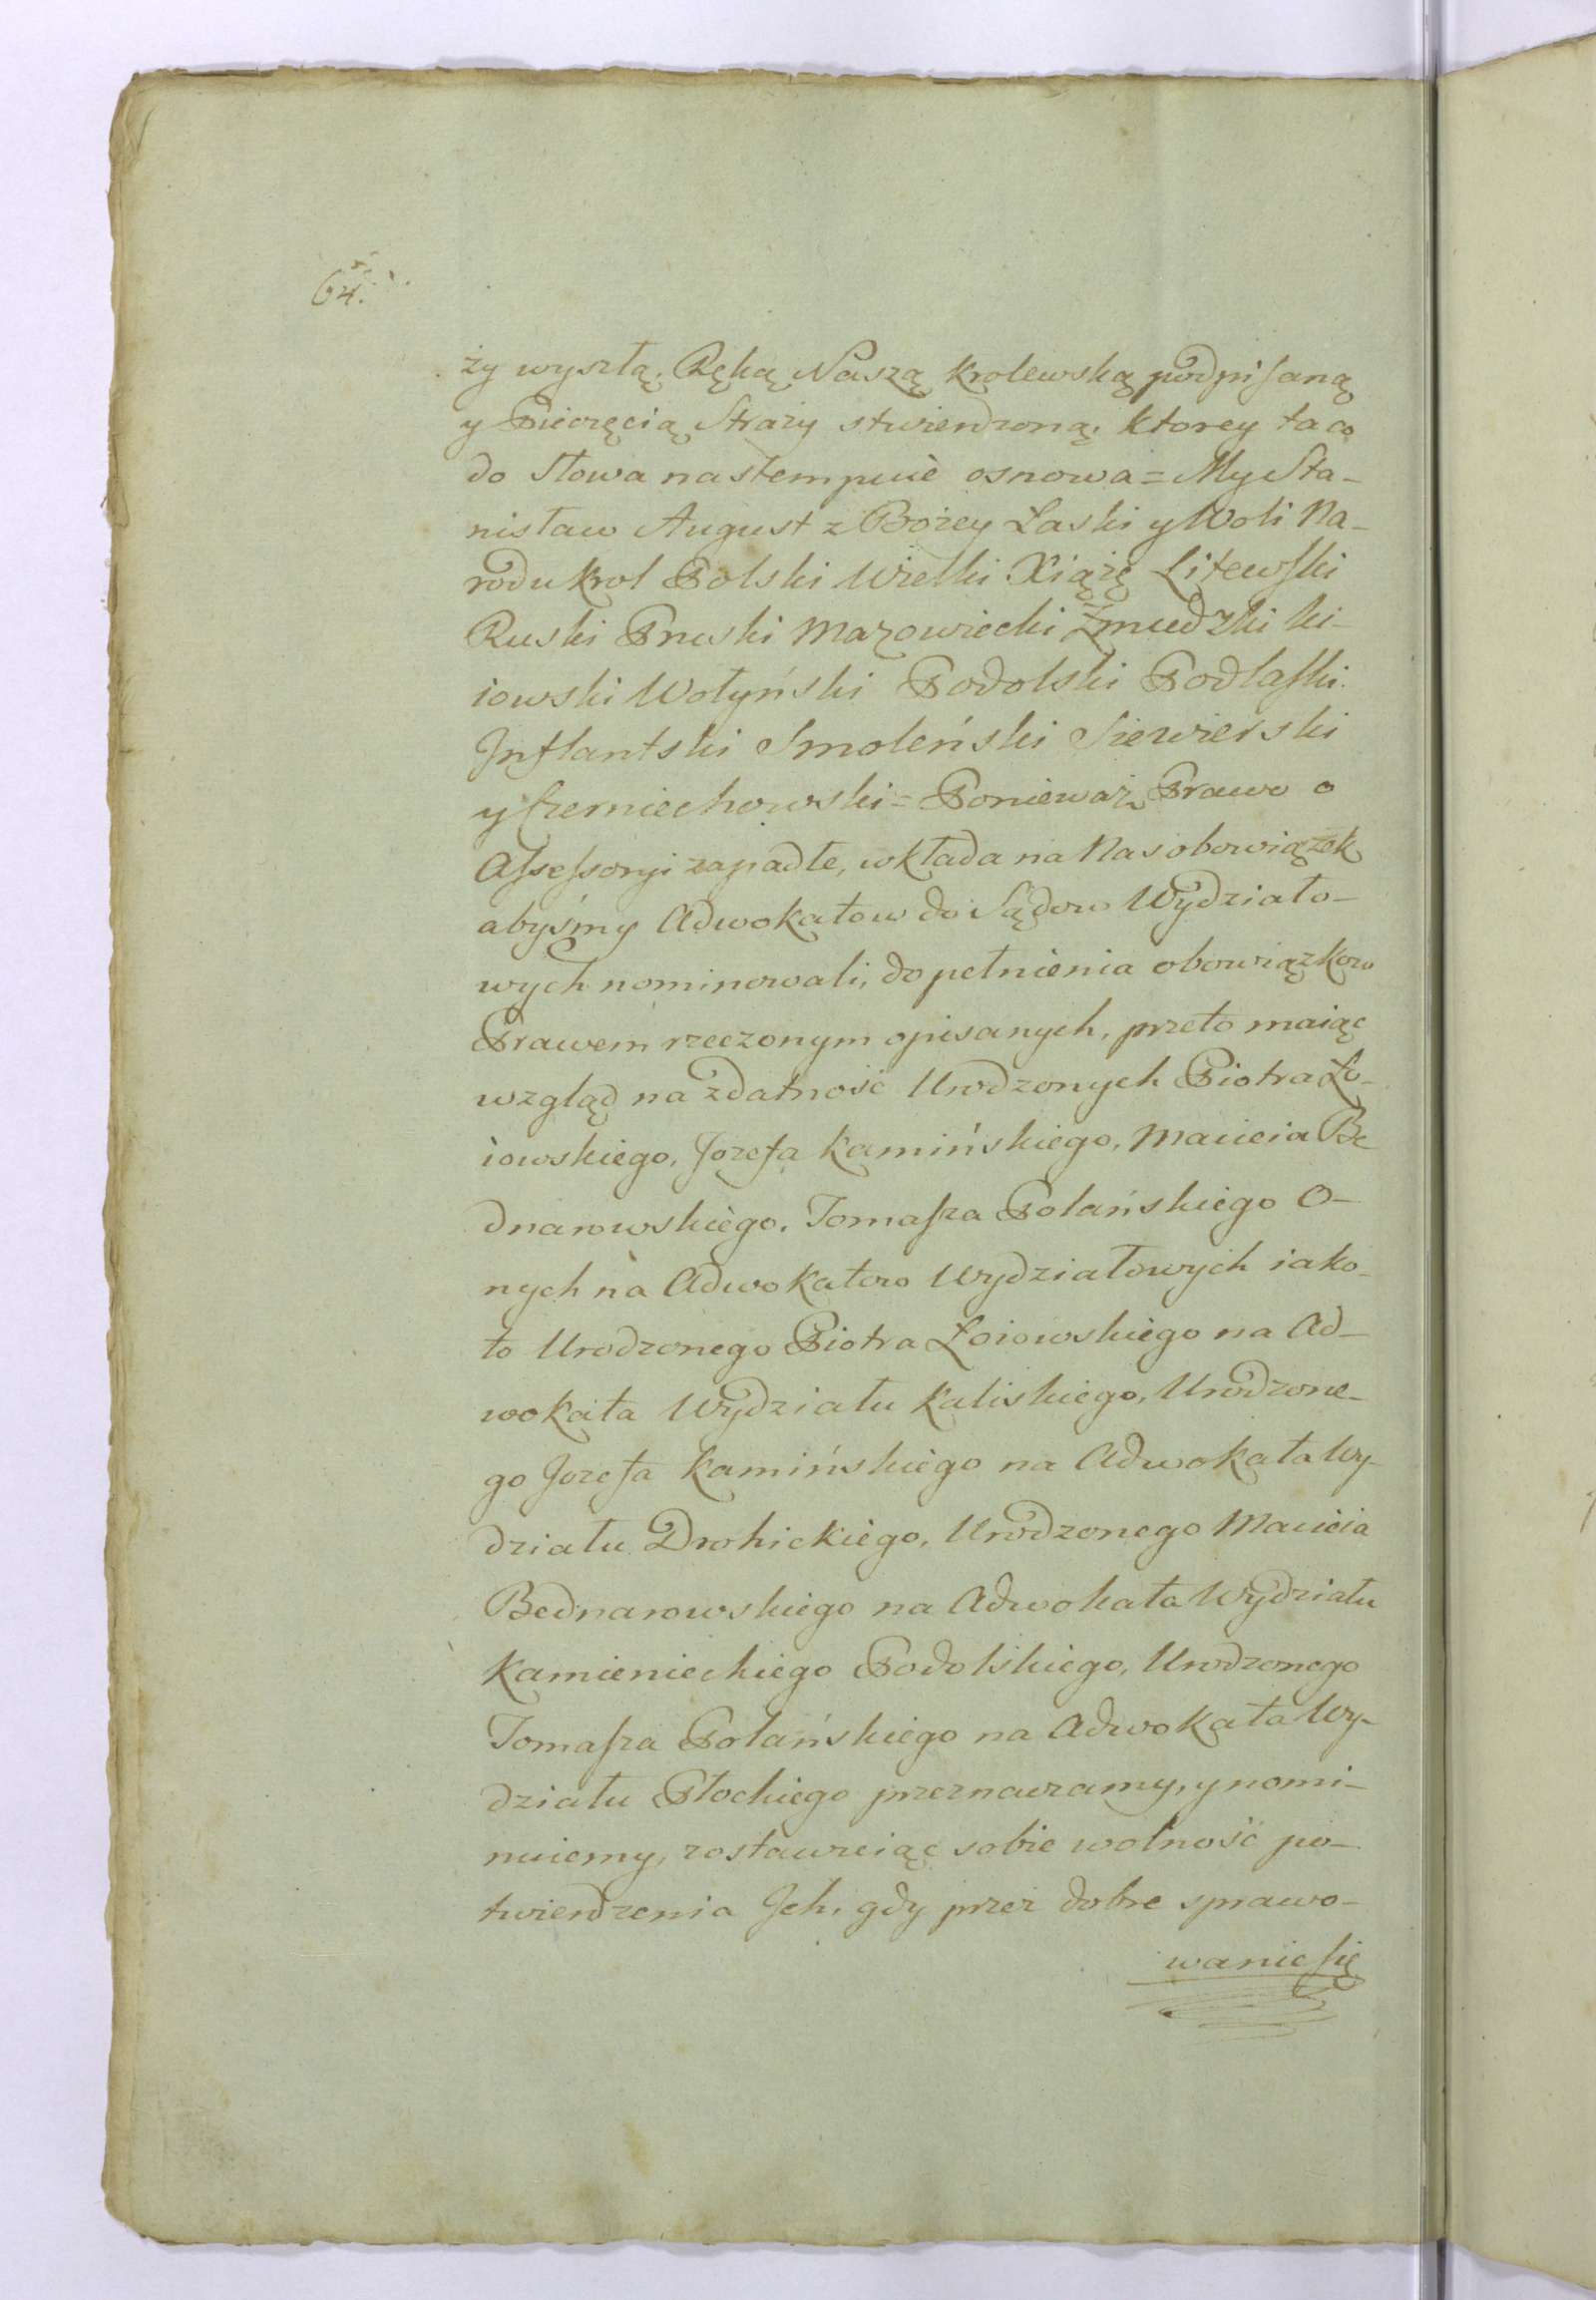 64.
ży wyszłą, Ręką Naszą Krolewską podpisaną
y Pieczęcią Straży stwierdzoną, ktorey ta co
do Słowa nastempuie osnowa = My Sta-
nisław August z Bożey Łaski y Woli Na-
rodu Krol Polski Wielki Xiążę Litewski
Ruski Pruski Mazowiecki Żmudzki Ki-
iowski Wołyński Podolski Podlaski
Inflantski Smoleński Siewierski
y Czerniechowski = Ponieważ Prawo o
Assessoryi zapadłe, wkłada na Nas obowiązek
abyśmy Adwokatow do Sądow Wydziało-
wych nominowali, do pełnienia obowiązkow
Prawem rzeczonym opisanych, przeto maiąc
wzgląd na zdatność Urodzonych Piotra Ło-
iowskiego, Jozefa Kamińskiego, Macieia Be
dnarowskiego, Tomasza Polańskiego O-
nych na Adwokatow Wydziałowych iako-
to Urodzonego Piotra Łoiowskiego na Ad-
wokata Wydziału Kaliskiego, Urodzone-
go Jozefa Kamińskiego na Adwokata Wy-
działu Drohickiego, Urodzonego Macieia
Bednarowskiego na Adwokata Wydziału
Kamienieckiego Podolskiego, Urodzonego
Tomasza Polańskiego na Adwokata Wy-
działu Płockiego przeznaczamy, y nomi-
nuiemy, zostawuiąc sobie wolność po-
twierdzenia Ich, gdy przez dobre sprawo-
wanie się